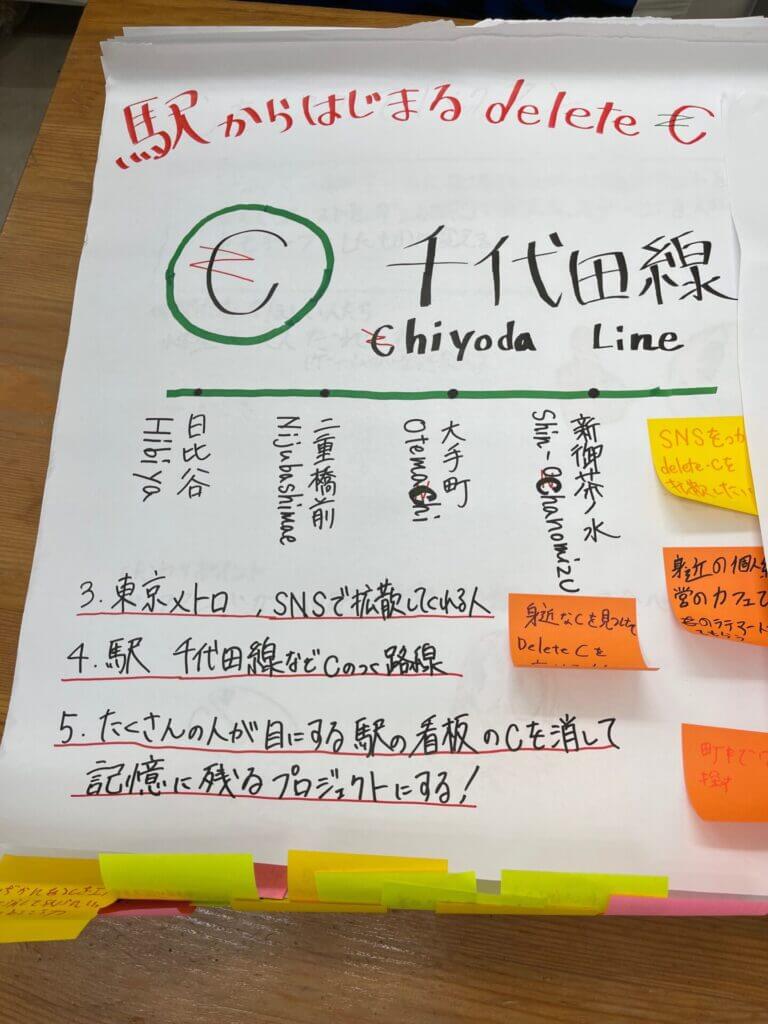 駅からはじまる delete C
C 千代田線
Chiyoda Line
日比谷
Hibiya
二重橋前
Nijubashimae
大手町
Otemachi
新御茶ノ水
Shin-Ochanomizu
3. 東京メトロ、SNSで拡散してくれる人
4. 駅 千代田線などCのつく路線
5. たくさんの人が目にする駅の看板のCを消して
記憶に残るプロジェクトにする!
SNSをつか
delete Cを
拡散したい
身近の個人経
営のカフェで
身近なCを見つけて
Delete Cを
町中で